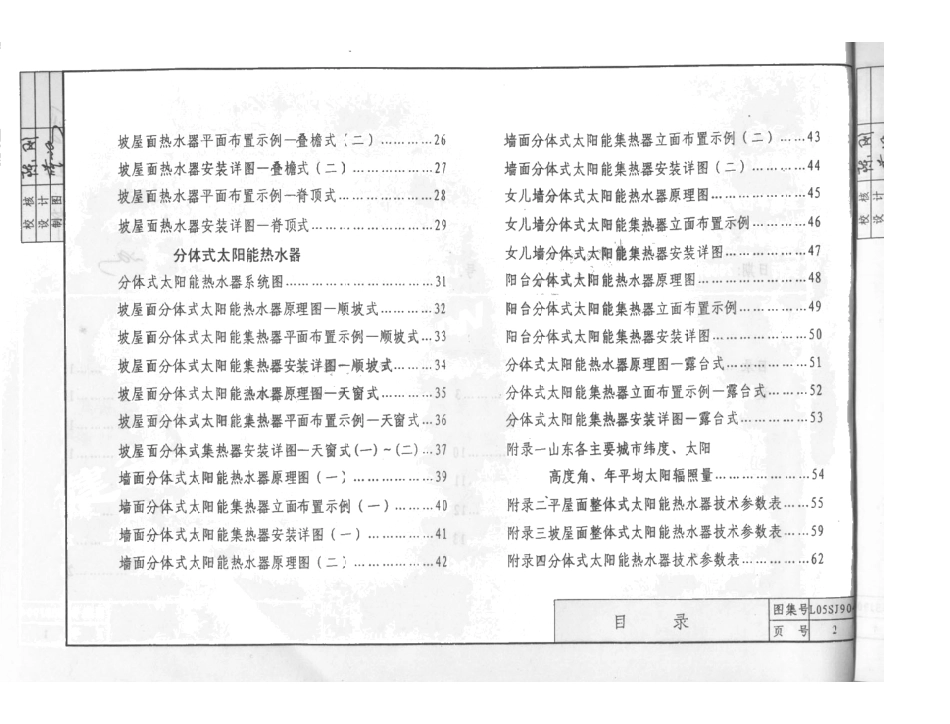 坡屋面热水器平面布置示例—叠檐式(二)…………26
坡屋面热水器安装详图—叠檐式(二)………………27
坡屋面热水器平面布置示例—脊顶式…………………28
坡屋面热水器安装详图—脊顶式………………………29
分体式太阳能热水器
分体式太阳能热水器系统图……………………………31
坡屋面分体式太阳能热水器原理图—顺坡式…………32
坡屋面分体式太阳能集热器平面布置示例—顺坡式…33
坡屋面分体式太阳能集热器安装详图—顺坡式………34
坡屋面分体式太阳能热水器原理图—天窗式…………35
坡屋面分体式太阳能集热器平面布置示例—天窗式…36
坡屋面分体式集热器安装详图—天窗式(一)~(二)…37
墙面分体式太阳能热水器原理图(一)………………39
墙面分体式太阳能集热器立面布置示例(一)………40
墙面分体式太阳能集热器安装详图(一)……………41
墙面分体式太阳能热水器原理图(二)………………42
墙面分体式太阳能集热器立面布置示例(二)……43
墙面分体式太阳能集热器安装详图(二)…………44
女儿墙分体式太阳能热水器原理图…………………45
女儿墙分体式太阳能集热器立面布置示例…………46
女儿墙分体式太阳能集热器安装详图………………47
阳台分体式太阳能热水器原理图……………………48
阳台分体式太阳能集热器立面布置示例……………49
阳台分体式太阳能集热器安装详图…………………50
分体式太阳能热水器原理图—露台式………………51
分体式太阳能集热器立面布置示例—露台式………52
分体式太阳能集热器安装详图—露台式……………53
附录一山东各主要城市纬度、太阳
高度角、年平均太阳辐照量…………………………54
附录二平屋面整体式太阳能热水器技术参数表……55
附录三坡屋面整体式太阳能热水器技术参数表……59
附录四分体式太阳能热水器技术参数表……………62
目 录
图集号 L05SJ90
页 号 2
校 核
设 计
制 图
校 核
设 计